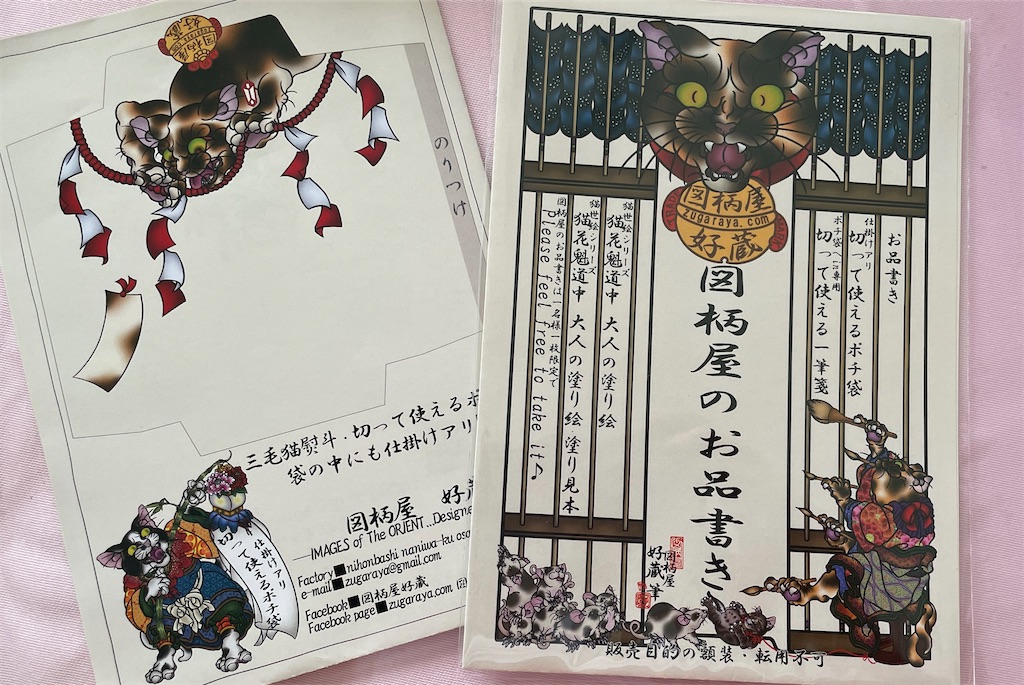 図柄屋
zugaraya.com
好蔵
のりつけ
三毛猫熨斗・切って使えるポ
袋の中にも仕掛けアリ
図柄屋 好蔵
IMAGES of The ORIENT...Designe
Factory■nihonbashi naniwa-ku oso
e-mail■zugaraya@gmail.com
Facebook■図柄屋好蔵
Facebook page■zugaraya.com
仕掛けアリ
切って使えるポチ袋
図柄屋
zugaraya.com
好蔵
お品書き
仕掛けアリ
切って使えるポチ袋
ポチ袋へ1:1専用
切って使える一筆箋
図柄屋のお品書き
図柄屋
好蔵 筆
猫世絵シリーズ
猫花魁道中 大人の塗り絵
猫世絵シリーズ
猫花魁道中 大人の塗り絵・塗り見本
図柄屋のお品書きは一名様一枚限定で
Please feel free to take it♪
販売目的の額装・転用不可